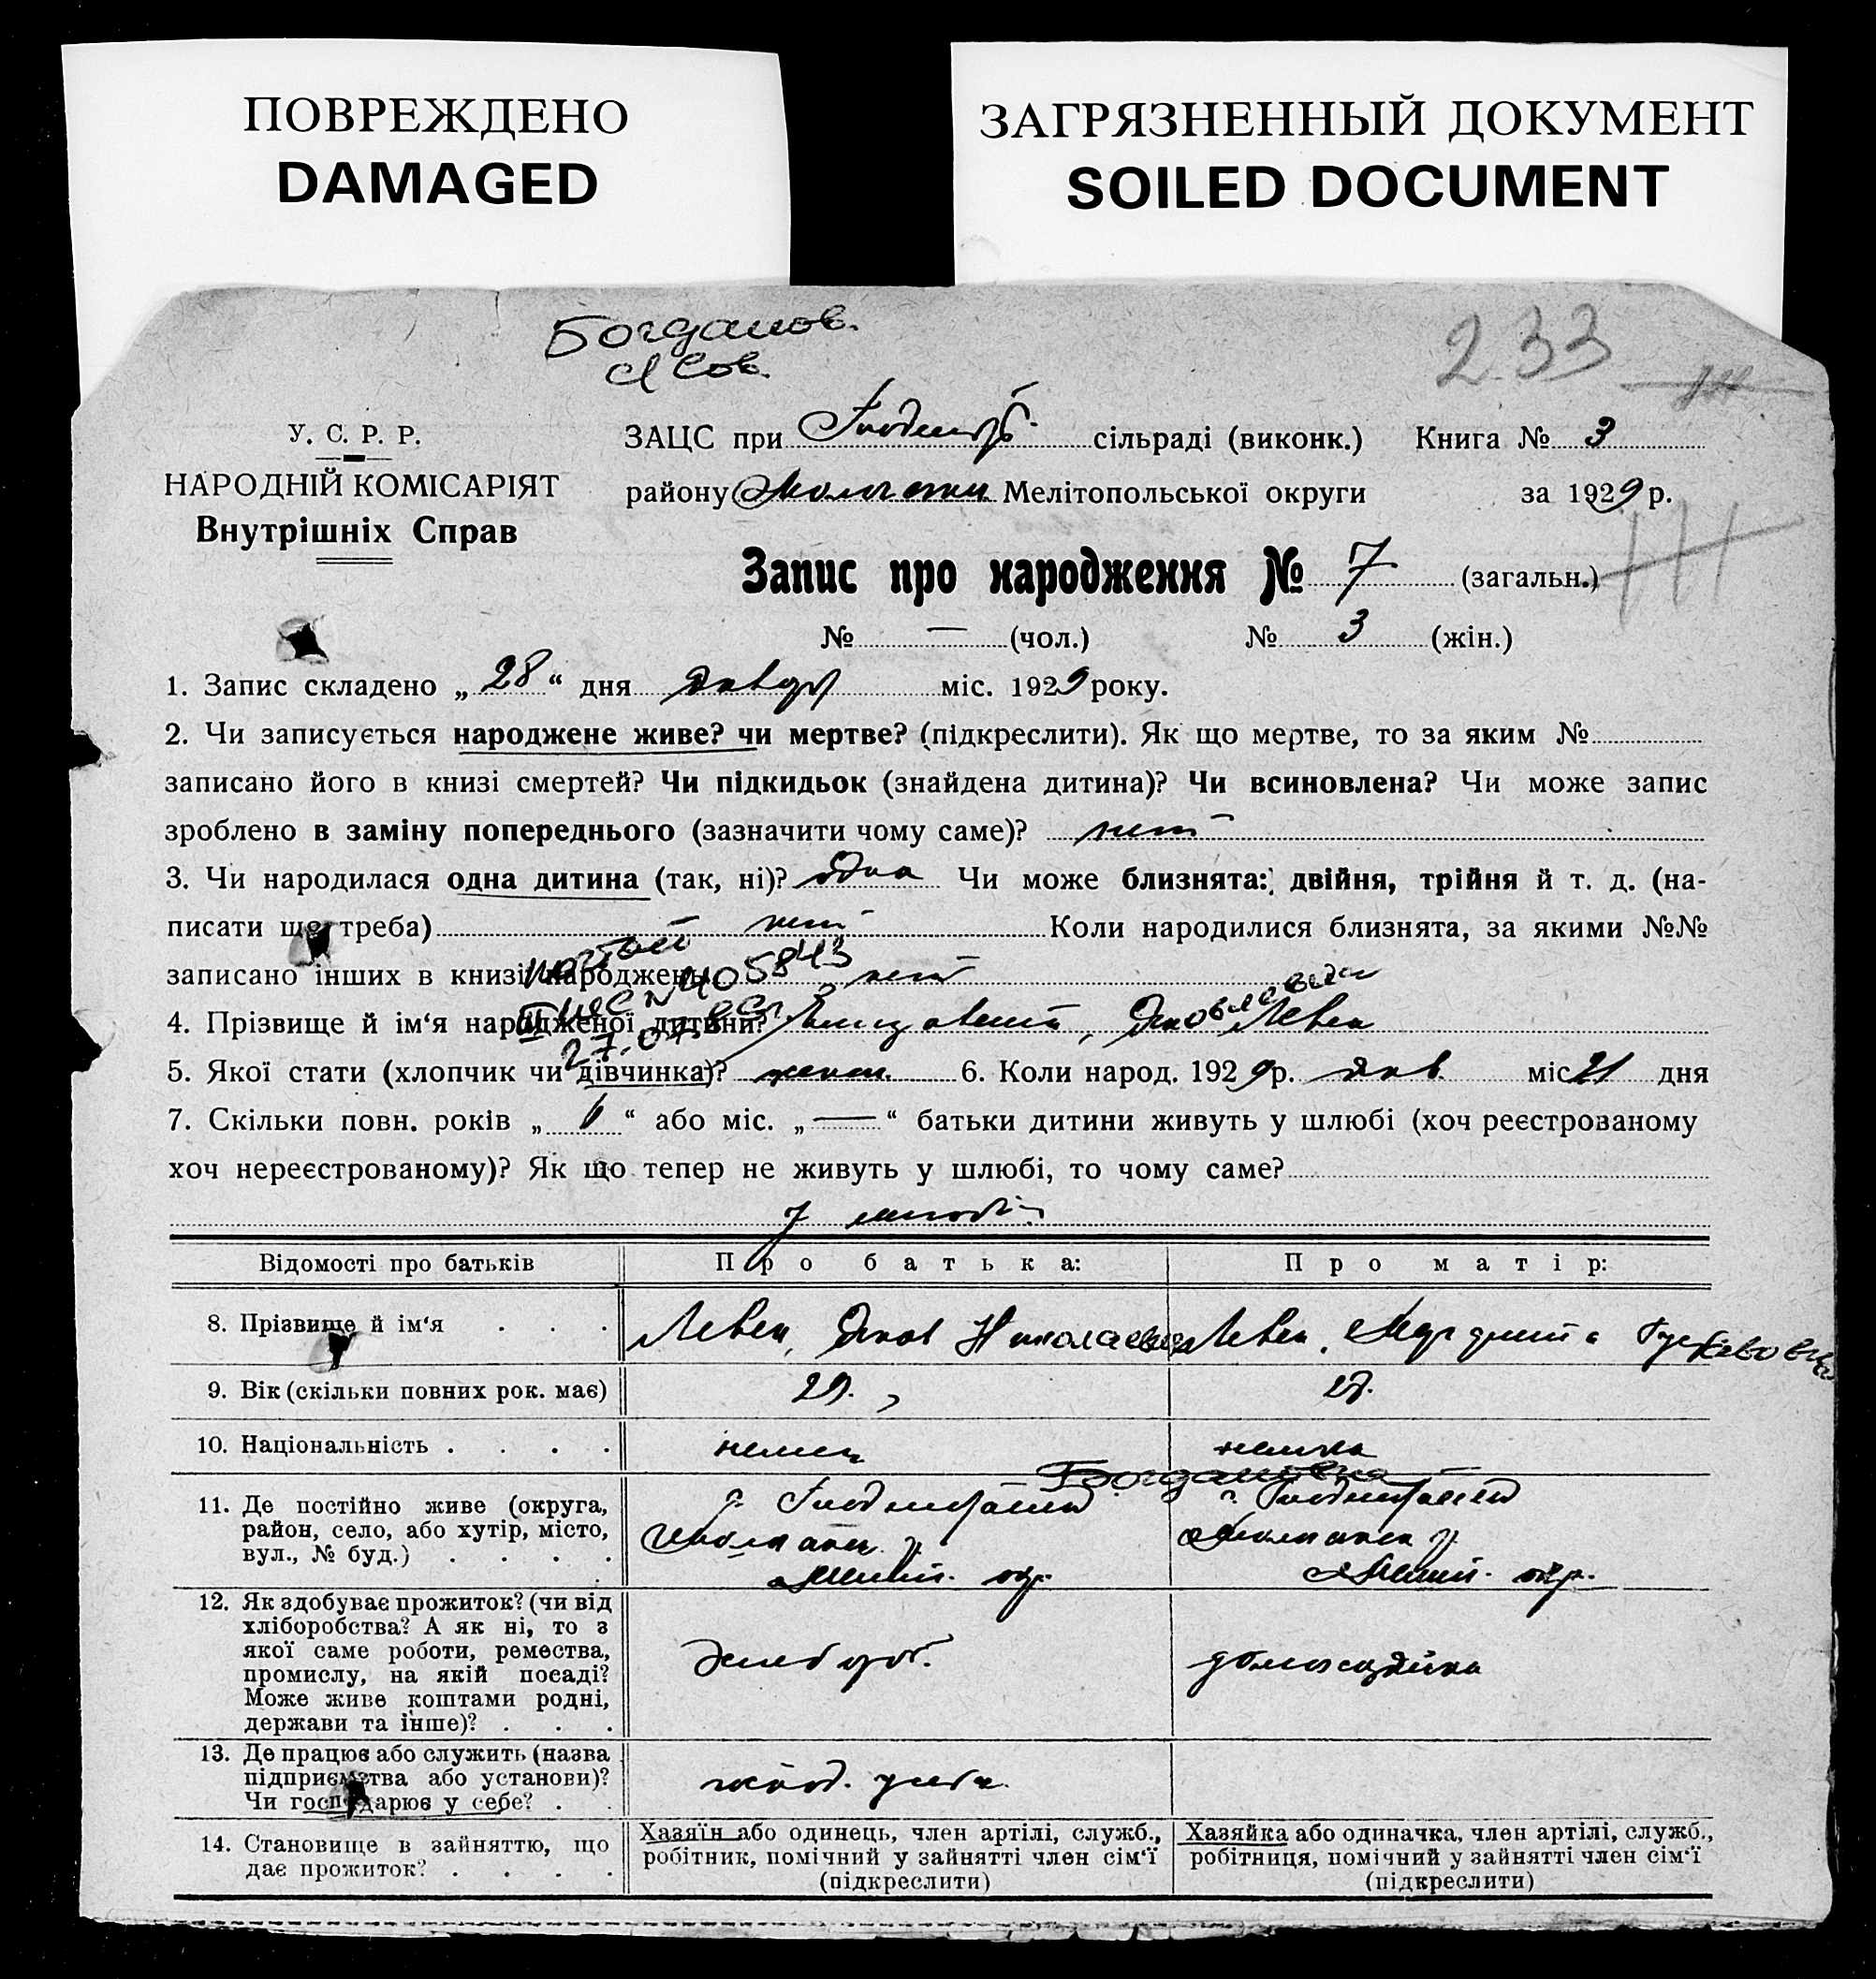 ПОВРЕЖДЕНО
DAMAGED
ЗАГРЯЗНЕННЫЙ ДОКУМЕНТ
SOILED DOCUMENT
Богданов.
233
У. С. Р. Р.
НАРОДНІЙ КОМІСАРІЯТ
Внутрішніх Справ
ЗАЦС при сільраді (виконк.) Книга № 3
району Мелітопольської округи за 1929 р.
Запис про народження № 7 (загальн.)
№ — (чол.) № 3 (жін.)
1. Запис складено „ 28 “ дня міс. 1929 року.
2. Чи записується народжене живе? чи мертве? (підкреслити). Як що мертве, то за яким №
записано його в книзі смертей? Чи підкидьок (знайдена дитина)? Чи всиновлена? Чи може запис
зроблено в заміну попереднього (зазначити чому саме)? нет
3. Чи народилася одна дитина (так, ні)? одна Чи може близнята: двійня, трійня й т. д. (на-
писати що треба) нет Коли народилися близнята, за якими №№
записано інших в книзі народжень нет
405843
4. Прізвище й ім‘я народженої дитини? Яковлевна Левен
5. Якої стати (хлопчик чи дівчинка)? женск. 6. Коли народ. 1929 р. янв. міс 21 дня
7. Скільки повн. років „ 6 “ або міс. „ — “ батьки дитини живуть у шлюбі (хоч реєстрованому
хоч нереєстрованому)? Як що тепер не живуть у шлюбі, то чому саме?
Відомості про батьків Про батька: Про матір:
8. Прізвище й ім‘я . . . Левен, Яков Николаевич Левен, Маргарита Густавовна
9. Вік (скільки повних рок. має) 29. 27.
10. Національність . . . . немец немка
11. Де постійно живе (округа,
район, село, або хутір, місто,
вул., № буд.) . . . .
12. Як здобуває прожиток? (чи від
хліборобства? А як ні, то з
якої саме роботи, ремества,
промислу, на якій посаді?
Може живе коштами родні,
держави та інше)? . . .
хлебороб. домохозяйка
13. Де працює або служить (назва
підприємства або установи)?
Чи господарює у себе? . .
14. Становище в зайняттю, що
дає прожиток? . . . .
Хазяїн або одинець, член артілі, служб.,
робітник, помічний у зайнятті член сім‘ї
(підкреслити)
Хазяйка або одиначка, член артілі, служб.,
робітниця, помічний у зайнятті член сім‘ї
(підкреслити)